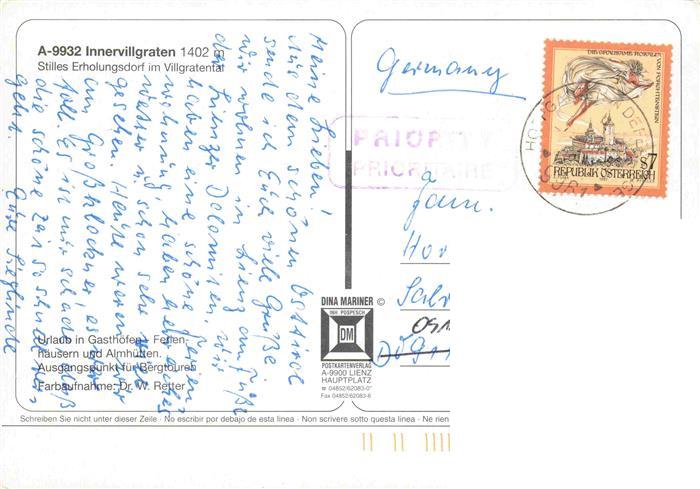 A-9932 Innervillgraten 1402 m
Stilles Erholungsdorf im Villgratental
Meine Lieben!
Aus dem schönen Osttirol
sende ich Euch viele Grüße
wir wohnen in Lienz am Fuße
der Lienzer Dolomiten, wir
haben eine schöne Ferien
wohnung, haben bei
Wetter schon sehr viel
gesehen. Heute waren wir
am Großglockner, es war
toll. Es ist nur schade, daß
die schöne Zeit so schnell
geht.
Gute Sieglinde
Urlaub in Gasthöfen, Ferien-
häusern und Almhütten.
Ausgangspunkt für Bergtouren
Farbaufnahme: Dr. W. Retter
DINA MARINER ©
INH POSPESCH
DM
POSTKARTENVERLAG
A-9900 LIENZ
HAUPTPLATZ
☎ 04852/62083-0*
Fax 04852/62083-6
Germany
PRIORITY
PRIORITAIRE
DIE GRAUSAME ROSALIA
VON FORCHTENSTEIN
S7
REPUBLIK ÖSTERREICH
Fam.
Schreiben Sie nicht unter dieser Zeile · No escribir por debajo de esta linea · Non scrivere sotto questa linea · Ne